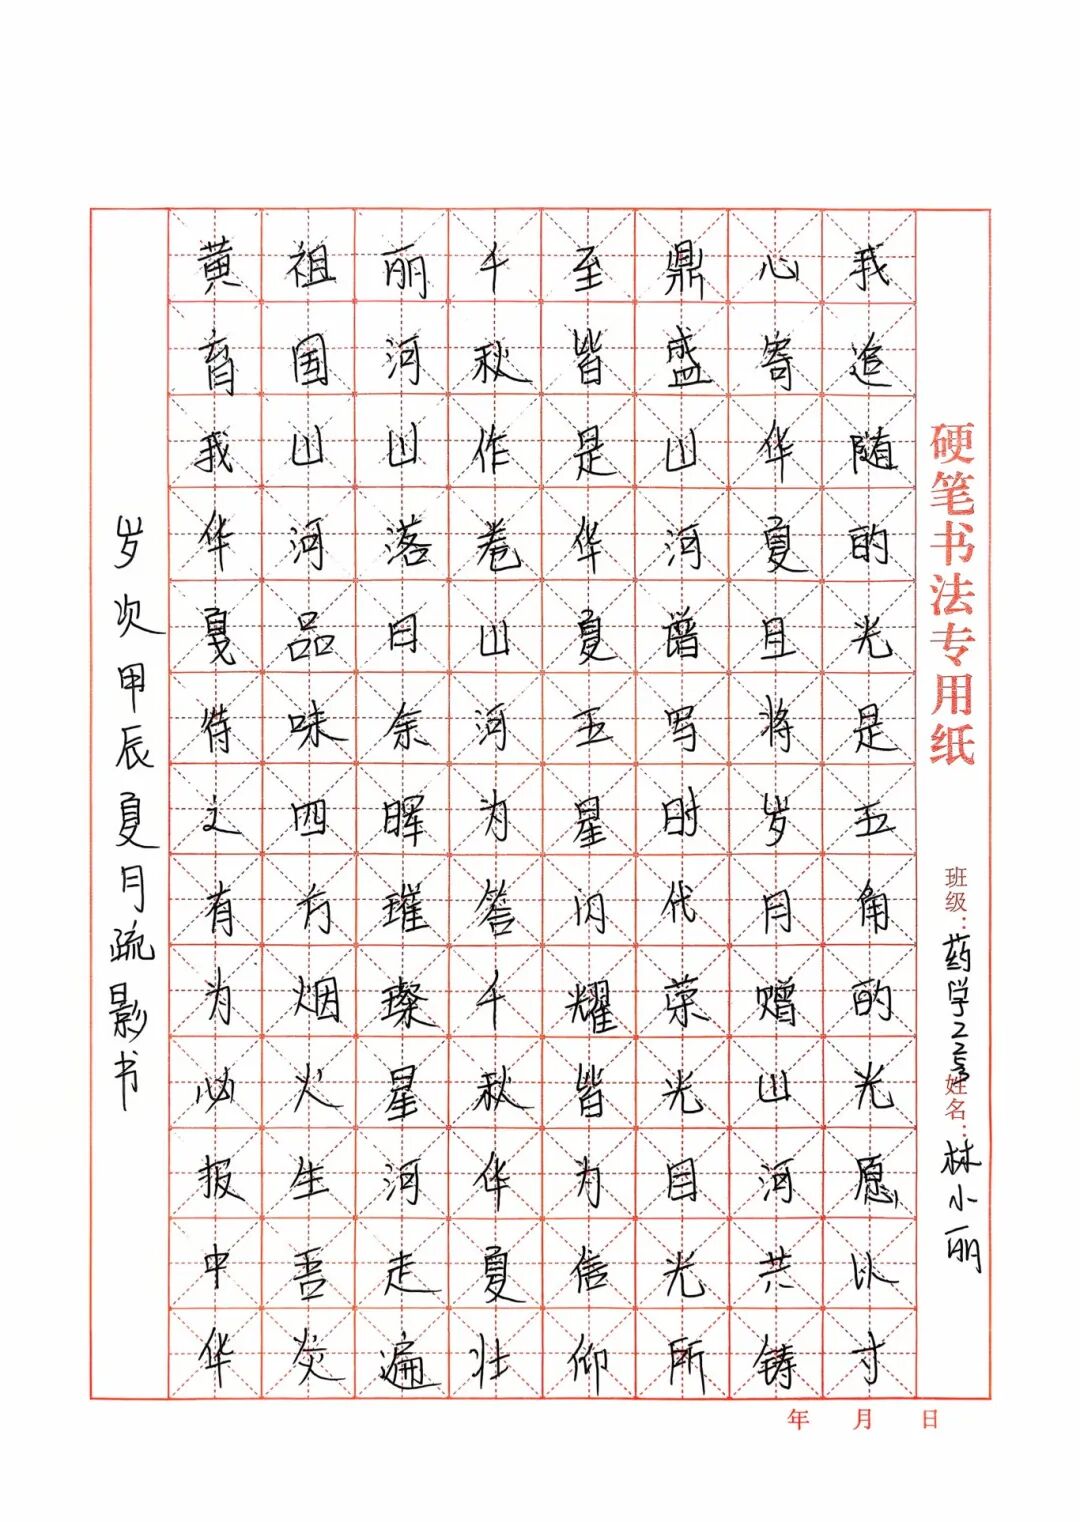 硬笔书法专用纸
班级：药学
姓名：林小丽
我追随的光是五角的光愿以寸
心寄华夏且将岁月赠山河共铸
鼎盛山河谱写时代荣光目光所
至皆是华夏五星闪耀皆为信仰
千秋作卷山河为答千秋华夏壮
丽河山落日余晖璀璨星河走遍
祖国山河品味四方烟火生吾炎
黄育我华夏待之有为必报中华
岁次甲辰夏月疏影书
年 月 日